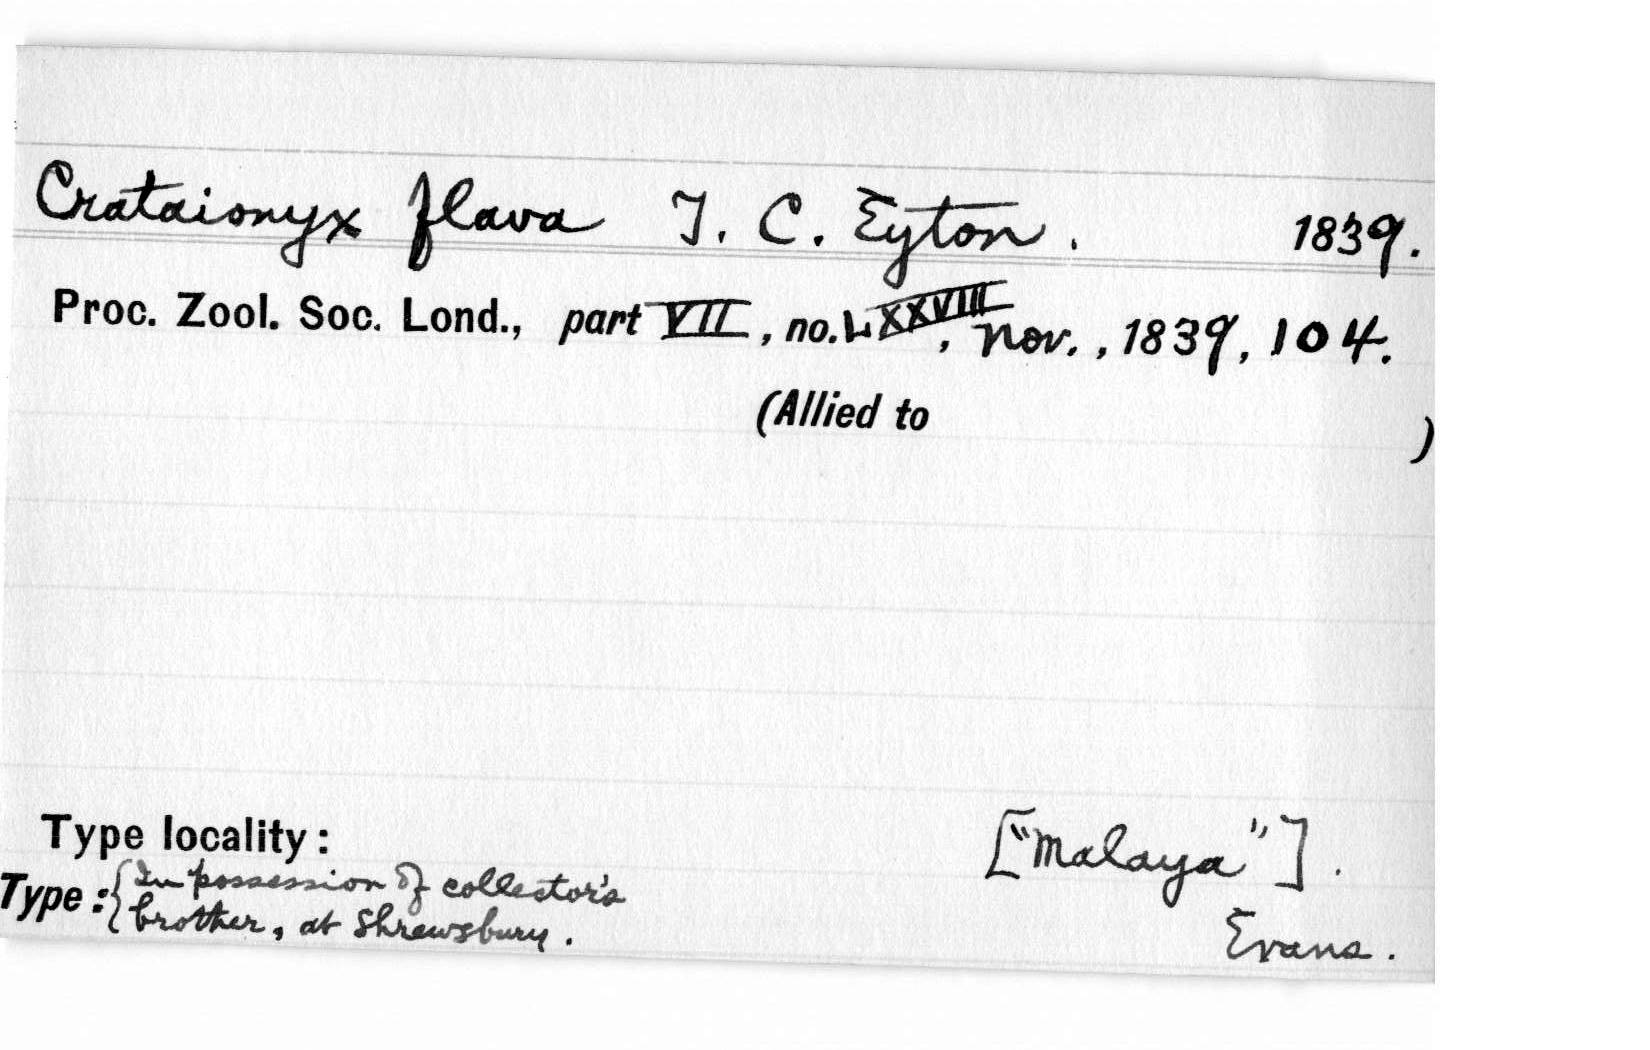 Crataionyx flava T. C. Eyton. 1839.
Proc. Zool. Soc. Lond., part VII, no. LXXVIII, Nov., 1839, 104.
(Allied to )
Type locality: ["Malaya"].
Type: {In possession of collector's
brother, at Shrewsbury.
Evans.